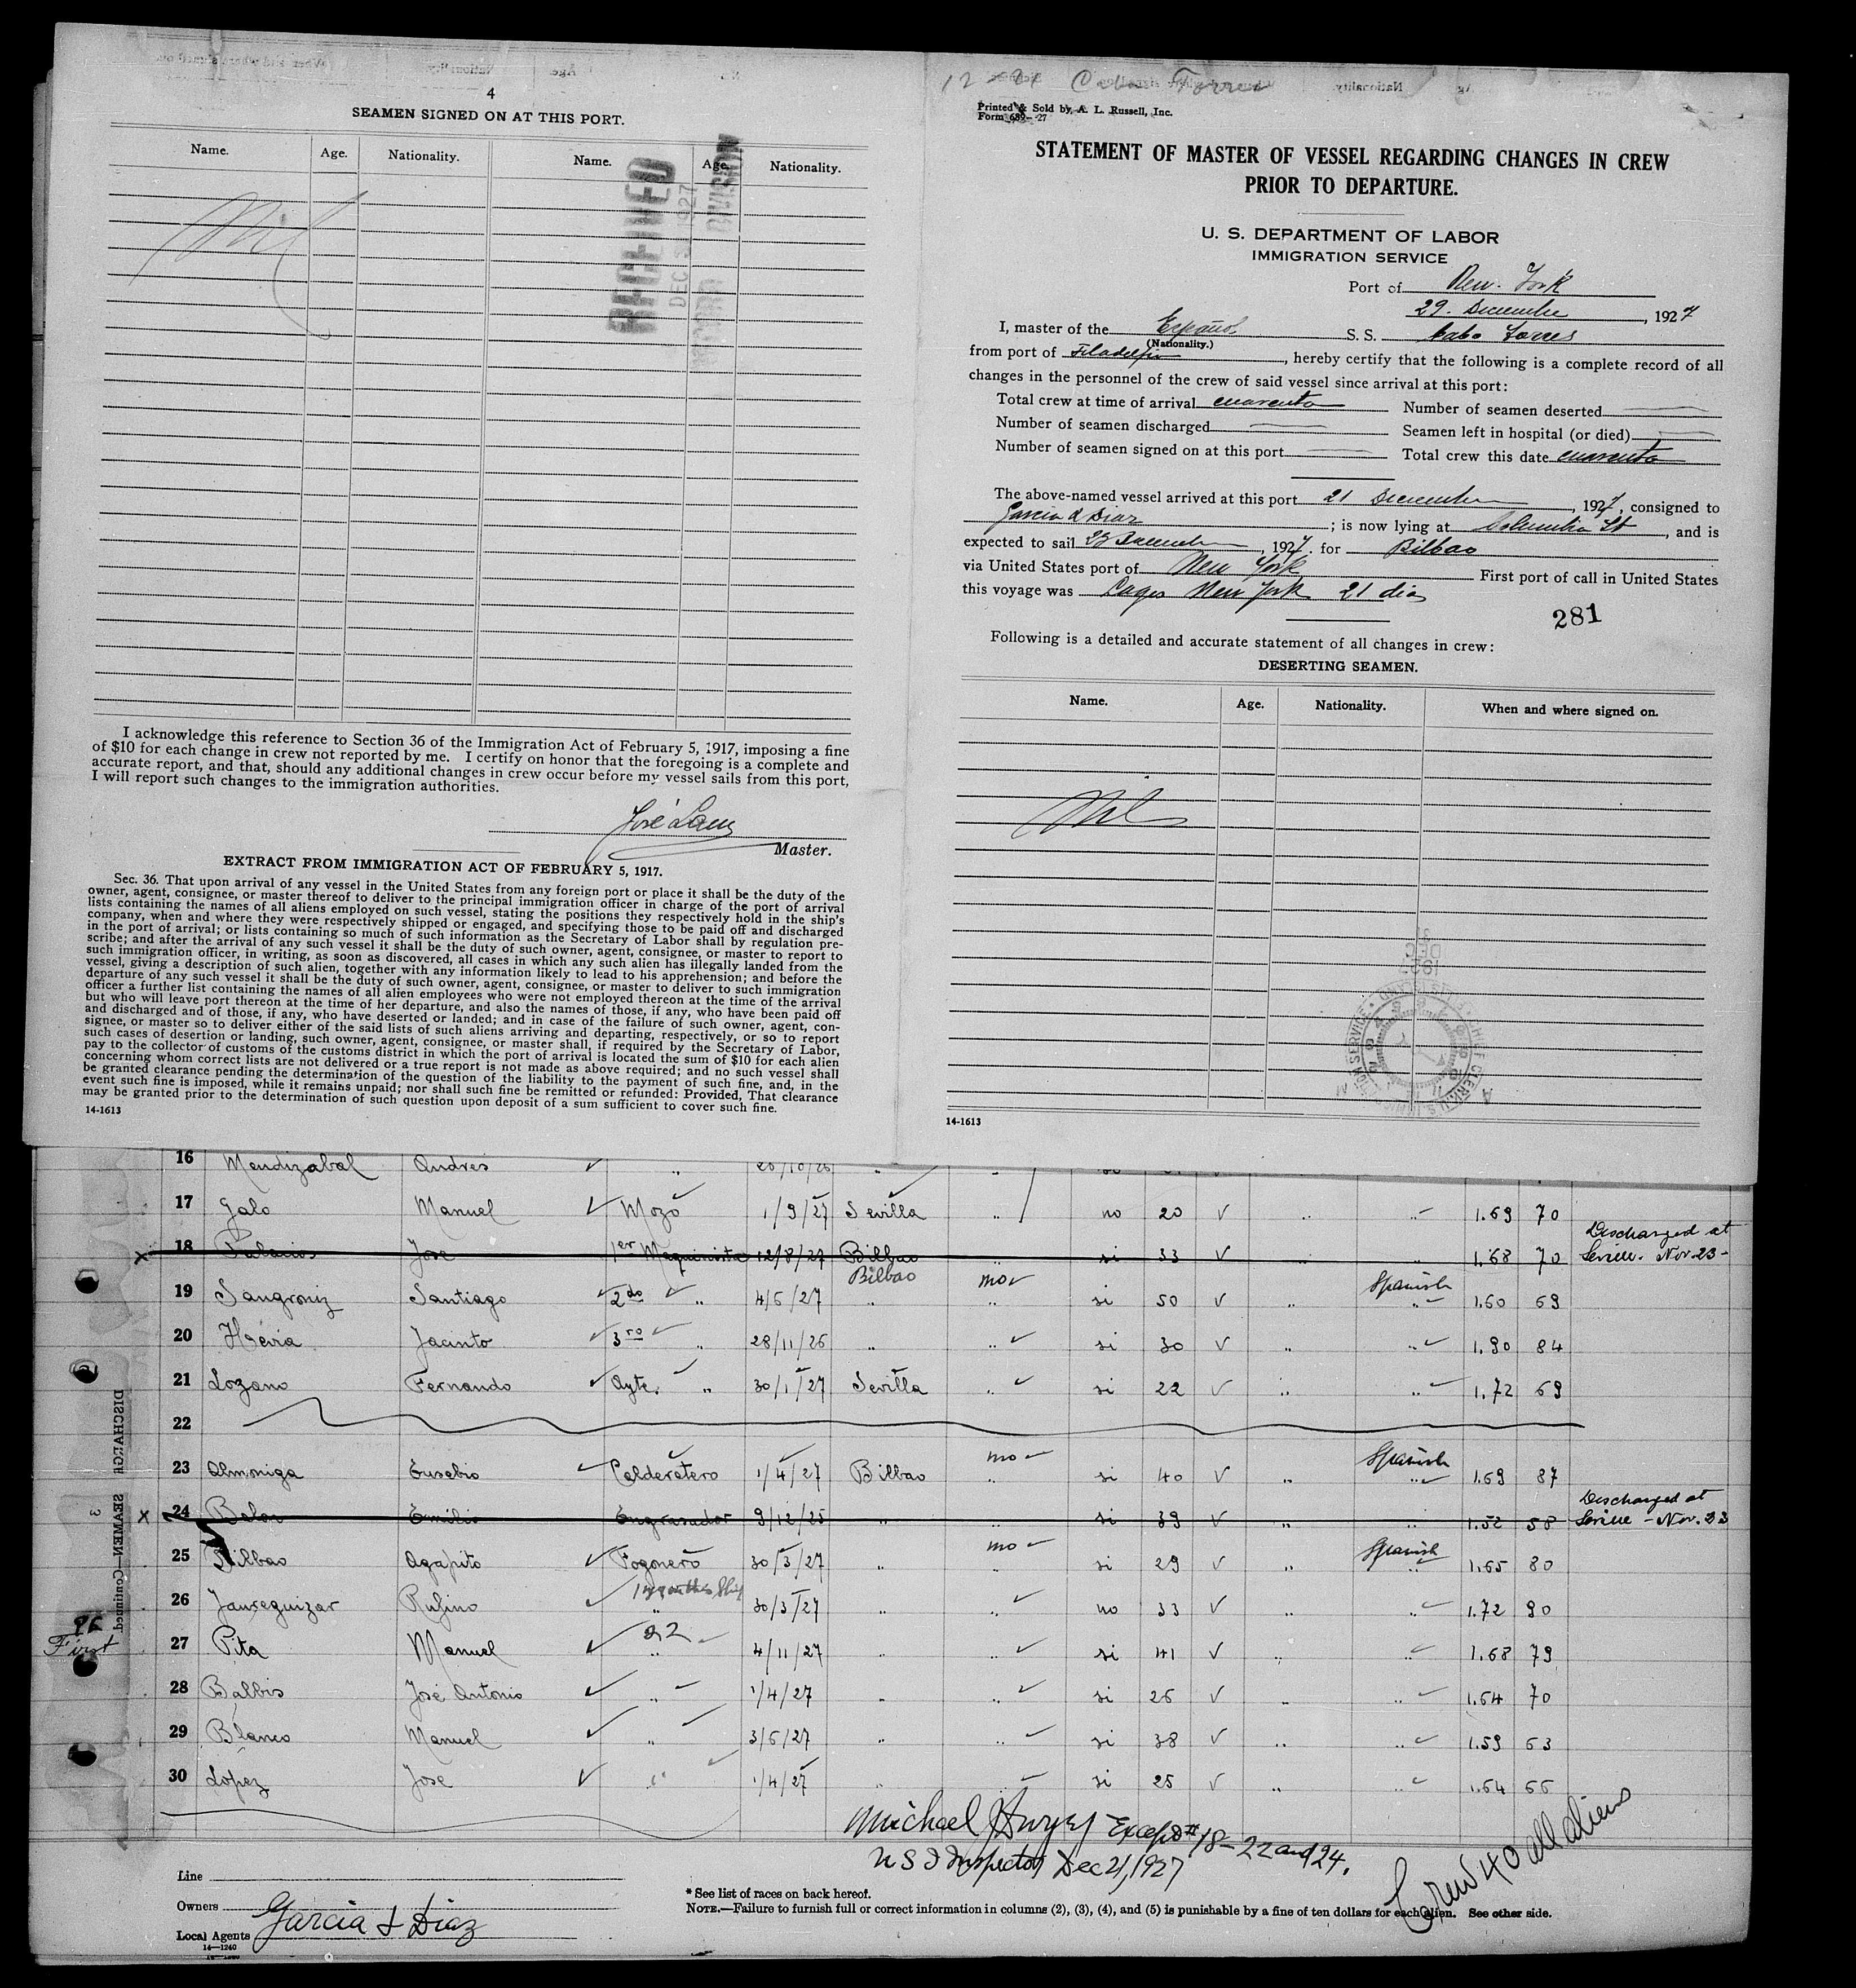 4
SEAMEN SIGNED ON AT THIS PORT.
Name. Age. Nationality. Name. Age. Nationality.
Nil
RECEIVED
DEC 1927
DIVISION
I acknowledge this reference to Section 36 of the Immigration Act of February 5, 1917, imposing a fine
of $10 for each change in crew not reported by me. I certify on honor that the foregoing is a complete and
accurate report, and that, should any additional changes in crew occur before my vessel sails from this port,
I will report such changes to the immigration authorities.
José
Master.
EXTRACT FROM IMMIGRATION ACT OF FEBRUARY 5, 1917.
Sec. 36. That upon arrival of any vessel in the United States from any foreign port or place it shall be the duty of the
owner, agent, consignee, or master thereof to deliver to the principal immigration officer in charge of the port of arrival
lists containing the names of all aliens employed on such vessel, stating the positions they respectively hold in the ship's
company, when and where they were respectively shipped or engaged, and specifying those to be paid off and discharged
in the port of arrival; or lists containing so much of such information as the Secretary of Labor shall by regulation pre-
scribe; and after the arrival of any such vessel it shall be the duty of such owner, agent, consignee, or master to report to
such immigration officer, in writing, as soon as discovered, all cases in which any such alien has illegally landed from the
vessel, giving a description of such alien, together with any information likely to lead to his apprehension; and before the
departure of any such vessel it shall be the duty of such owner, agent, consignee, or master to deliver to such immigration
officer a further list containing the names of all alien employees who were not employed thereon at the time of the arrival
but who will leave port thereon at the time of her departure, and also the names of those, if any, who have been paid off
and discharged and of those, if any, who have deserted or landed; and in case of the failure of such owner, agent, con-
signee, or master so to deliver either of the said lists of such aliens arriving and departing, respectively, or so to report
such cases of desertion or landing, such owner, agent, consignee, or master shall, if required by the Secretary of Labor,
pay to the collector of customs of the customs district in which the port of arrival is located the sum of $10 for each alien
concerning whom correct lists are not delivered or a true report is not made as above required; and no such vessel shall
be granted clearance pending the determination of the question of the liability to the payment of such fine, and, in the
event such fine is imposed, while it remains unpaid; nor shall such fine be remitted or refunded: Provided, That clearance
may be granted prior to the determination of such question upon deposit of a sum sufficient to cover such fine.
14-1613
12-21 Cabo Torres
Printed & Sold by A. L. Russell, Inc.
Form 689-27
STATEMENT OF MASTER OF VESSEL REGARDING CHANGES IN CREW
PRIOR TO DEPARTURE.
U. S. DEPARTMENT OF LABOR
IMMIGRATION SERVICE
Port of New. York
29. Decembre, 1927
I, master of the Español S. S. Cabo Torres
(Nationality.)
from port of Filadelfia, hereby certify that the following is a complete record of all
changes in the personnel of the crew of said vessel since arrival at this port:
Total crew at time of arrival cuarenta Number of seamen deserted
Number of seamen discharged Seamen left in hospital (or died)
Number of seamen signed on at this port Total crew this date cuarenta
The above-named vessel arrived at this port 21 December, 1927, consigned to
Garcia & Diaz; is now lying at Columbia St, and is
expected to sail, 1927. for Bilbao
via United States port of New York First port of call in United States
this voyage was New York 21 dia
281
Following is a detailed and accurate statement of all changes in crew:
DESERTING SEAMEN.
Name. Age. Nationality. When and where signed on.
Nil
1927 DEC 31
14-1613
16 Mendizabal Andres " 26/10/26
17 Galo Manuel Mozo 1/9/27 Sevilla " no 20 " " 1.69 70
18 Palacios Jose 1er Maquinista 12/8/27 Bilbao " si 33 " " 1.68 70 Discharged at Seville. Nov. 23-
19 Sangroniz Santiago 2do " 4/5/27 Bilbao " mo " si 50 " Spanish " 1.60 69
20 Hevia Jacinto 3ro " 28/11/26 " " si 30 " " 1.80 84
21 Lozano Fernando Ayte. " 30/1/27 Sevilla " si 22 " " 1.72 69
22
23 Almoniga Eusebio Calderetero 1/4/27 Bilbao mo " si 40 " Spanish " 1.69 87
24 Belon Emilio Engrasador 9/12/25 " " si 39 " " 1.52 58 Discharged at Seville - Nov. 23
25 Bilbao Agapito Fogonero 30/3/27 " mo " si 29 " Spanish " 1.65 80
26 Jaureguizar Rufino " 30/3/27 " " no 33 " " 1.72 90
27 Pita Manuel 22 " 4/11/27 " " si 41 " " 1.68 79
28 Balbis José Antonio " 1/4/27 " " si 26 " " 1.64 70
29 Blanco Manuel " 3/6/27 " " si 38 " " 1.59 63
30 López Jose " 1/4/27 " si 25 " " 1.64 66
First
DISCHARGE SEAMEN—Continued.
3
Michael Except #18-22 and 24.
U S I Inspector Dec 21, 1927
Crew 40 all aliens
Line
Owners
Local Agents Garcia & Diaz
14—1240
* See list of races on back hereof.
NOTE.—Failure to furnish full or correct information in columns (2), (3), (4), and (5) is punishable by a fine of ten dollars for each alien. See other side.